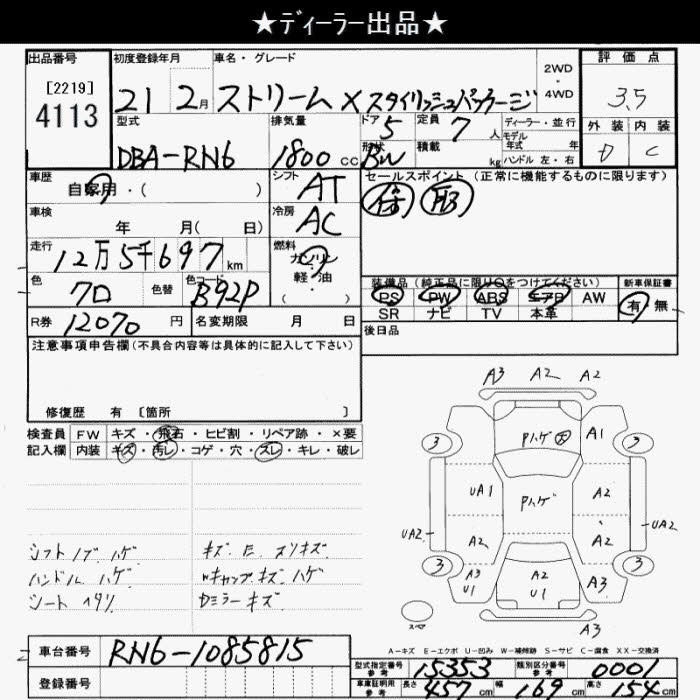 ★ディーラー出品★
出品番号
[2219]
4113
初度登録年月
21 2月
車名・グレード
ストリーム X スタイリッシュパッケージ
2WD
・
4WD
評価点
3.5
外装 内装
D C
型式
DBA-RN6
排気量
1800 cc
ドア 5
形状 BW
定員 7 人
積載 kg
ディーラー・並行
モデル
年式 年
ハンドル 左・右
車歴
自家用・( )
シフト AT
セールスポイント (正常に機能するものに限ります)
車検
年 月( 日)
冷房 AC
走行
12万5千697 km
燃料
ガソリン
軽・油
・( )
色
クロ
色替
色コード
B92P
装備品 (純正品に限り○をつけてください)
PS PW ABS エアB AW
SR ナビ TV 本革
新車保証書
有 無
R券 12070 円
名変期限 月 日
後日品
注意事項申告欄 (不具合内容等は具体的に記入して下さい)
修復歴 有 [箇所 ]
検査員 FW キズ・飛石・ヒビ割・リペア跡・×要
記入欄 内装 キズ・汚レ・コゲ・穴・スレ・キレ・破レ
シフトノブ ハゲ
ハンドル ハゲ
シート ヘタリ
キズ E スリキズ
Wキャップ キズ ハゲ
Dミラー キズ
A3 A2 A2
3 Pハゲ A1 3
UA1 Pハゲ A2
UA2 A2 A2 UA2
3 A3 U1 A2 U1 A3 3
スペア
A3
A-キズ E-エクボ U-凹み W-補修跡 S-サビ C-腐食 XX-交換済
車台番号 RN6-1085815
登録番号
型式指定番号 参考 15353
類別区分番号 参考 0001
車庫証明用 参考 長さ 457 cm 幅 169 cm 高さ 154 cm